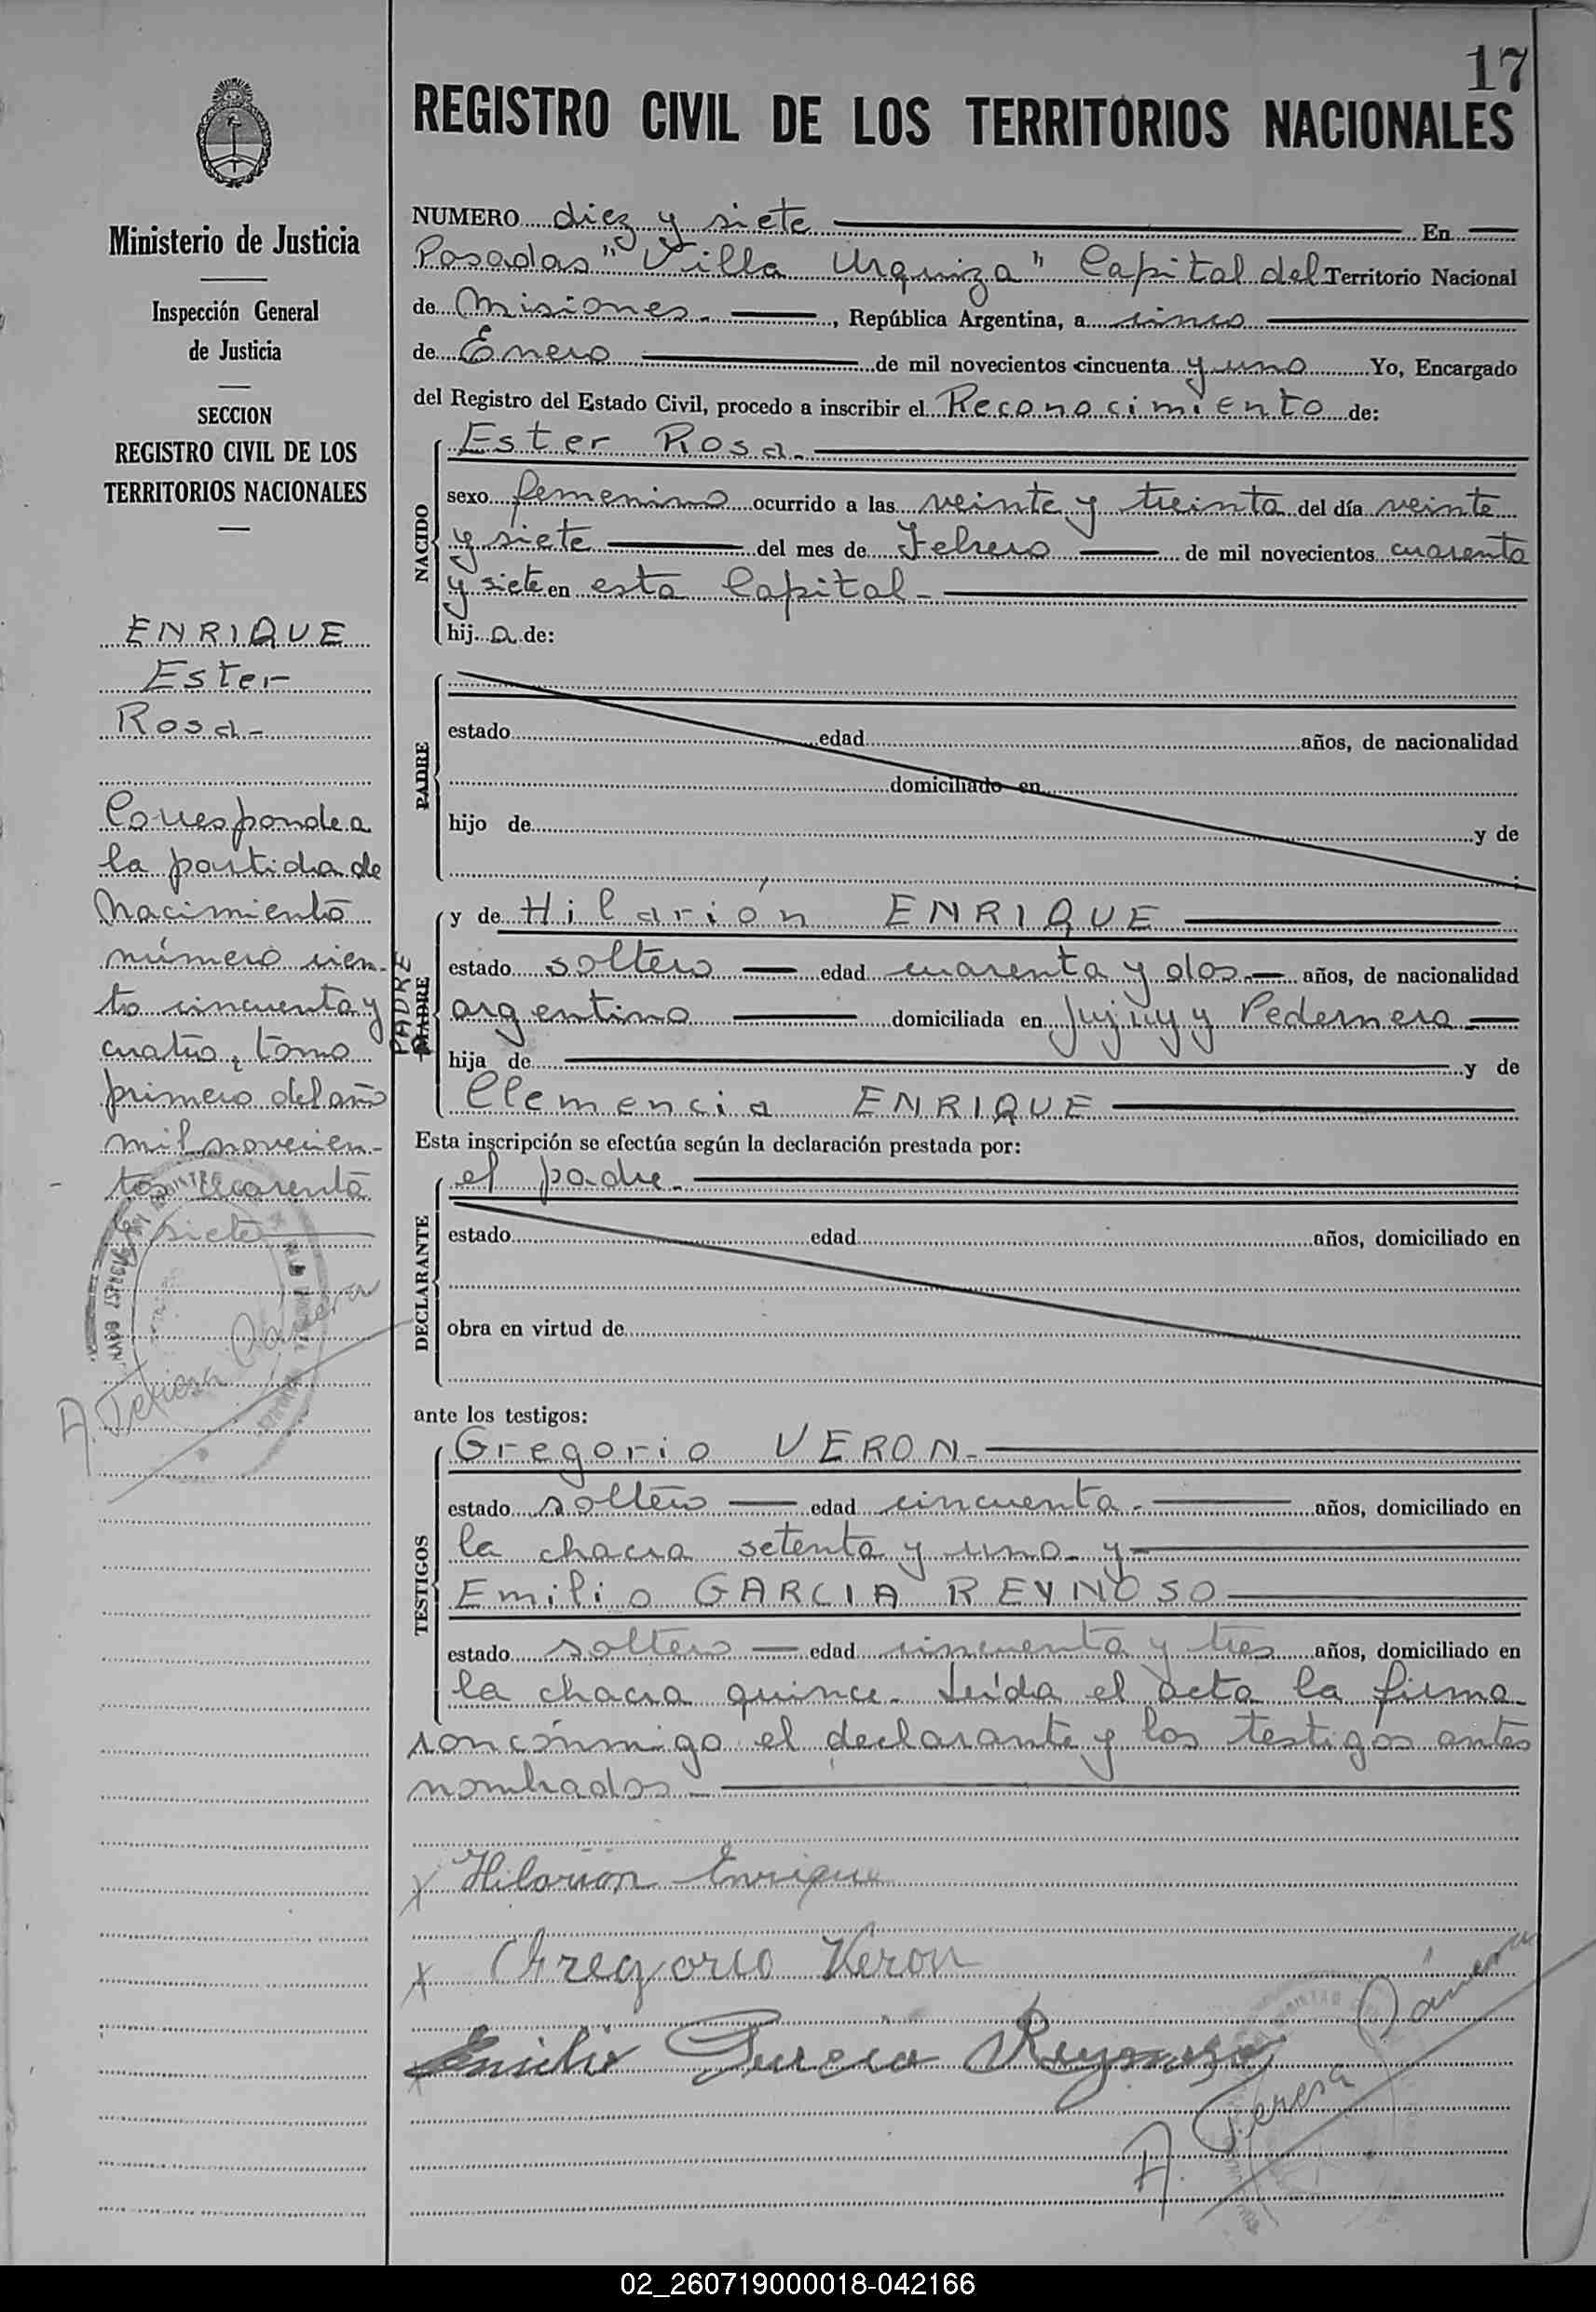 17
REGISTRO CIVIL DE LOS TERRITORIOS NACIONALES
Ministerio de Justicia
Inspección General
de Justicia
SECCION
REGISTRO CIVIL DE LOS
TERRITORIOS NACIONALES
ENRIQUE
Ester
Rosa-
Corresponde a
la partida de
Nacimiento
número cien-
to cincuenta y
cuatro, tomo
primero del año
mil novecien-
tos cuarenta
y siete
A. Teresa
NUMERO diez y siete En
Posadas "Villa Urquiza" Capital del Territorio Nacional
de Misiones.-, República Argentina, a cinco
de Enero de mil novecientos cincuenta y uno Yo, Encargado
del Registro del Estado Civil, procedo a inscribir el Reconocimiento de:
NACIDO
Ester Rosa.-
sexo femenino ocurrido a las veinte y treinta del día veinte
y siete del mes de Febrero de mil novecientos cuarenta
y siete en esta Capital-
hij a de:
PADRE
estado edad años, de nacionalidad
domiciliado en
hijo de y de
PADRE
y de Hilarión ENRIQUE
estado soltero edad cuarenta y dos.- años, de nacionalidad
argentino domiciliada en Jujuy y Pedernera
hija de y de
Clemencia ENRIQUE
Esta inscripción se efectúa según la declaración prestada por:
DECLARANTE
el padre.-
estado edad años, domiciliado en
obra en virtud de
ante los testigos:
TESTIGOS
Gregorio VERON.-
estado soltero edad cincuenta.- años, domiciliado en
la chacra setenta y uno- y
Emilio GARCIA REYNOSO
estado soltero edad cincuenta y tres años, domiciliado en
la chacra quince. Leída el acta la firma
con conmigo el declarante y los testigos antes
nombrados.-
x Hilarion Enrique
x Gregorio Veron
x Emilio Garcia Reynoso
A. Teresa
02_260719000018-042166